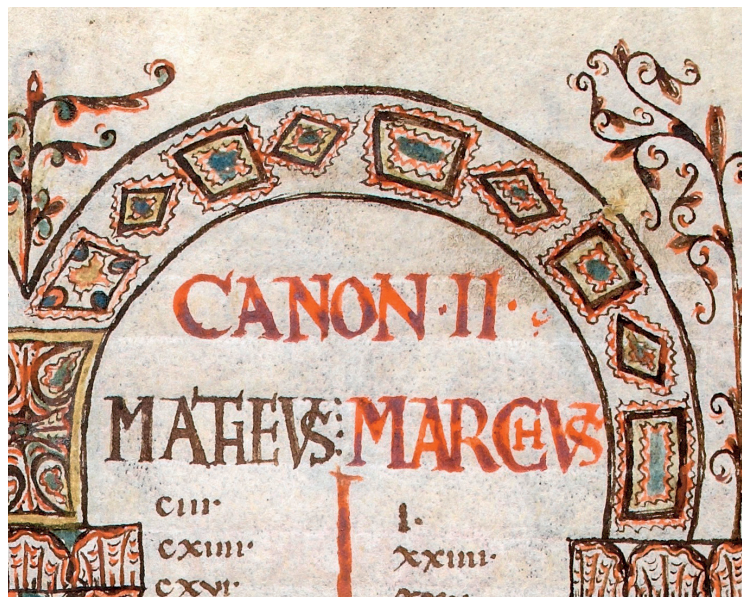 CANON·II·
MATHEVS: MARCHVS
ciii· i·
cxiiii· xxiiii·
cxvi·